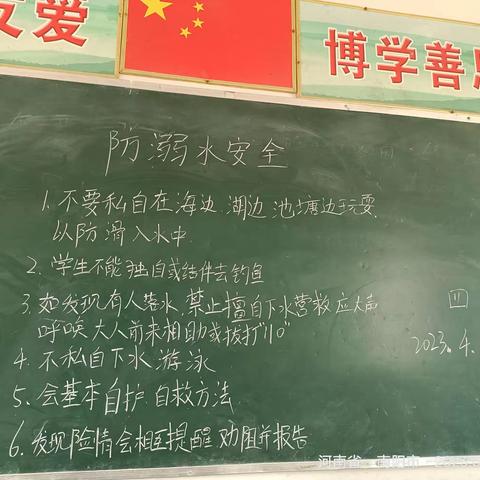 友爱
博学善思
防溺水安全
1. 不要私自在海边、湖边、池塘边玩耍,
以防滑入水中.
2. 学生不能独自或结伴去钓鱼
3. 如发现有人落水,禁止擅自下水营救应大声
呼唤大人前来相助或拔打"110"
4. 不私自下水游泳
5. 会基本自护、自救方法.
6. 发现险情会相互提醒、劝阻并报告
四
2023.4.
河南省